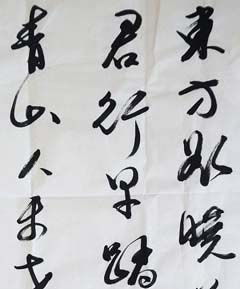 東方欲曉
君行早踏
青山人未老